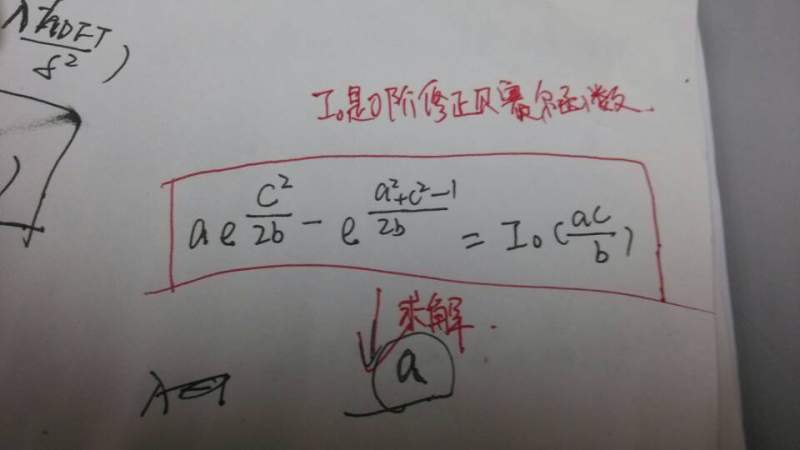 I₀是0阶修正贝塞尔函数.
ae^{\frac{c^2}{2b}} - e^{\frac{a^2+c^2-1}{2b}} = I_0(\frac{ac}{b})
求解.
a